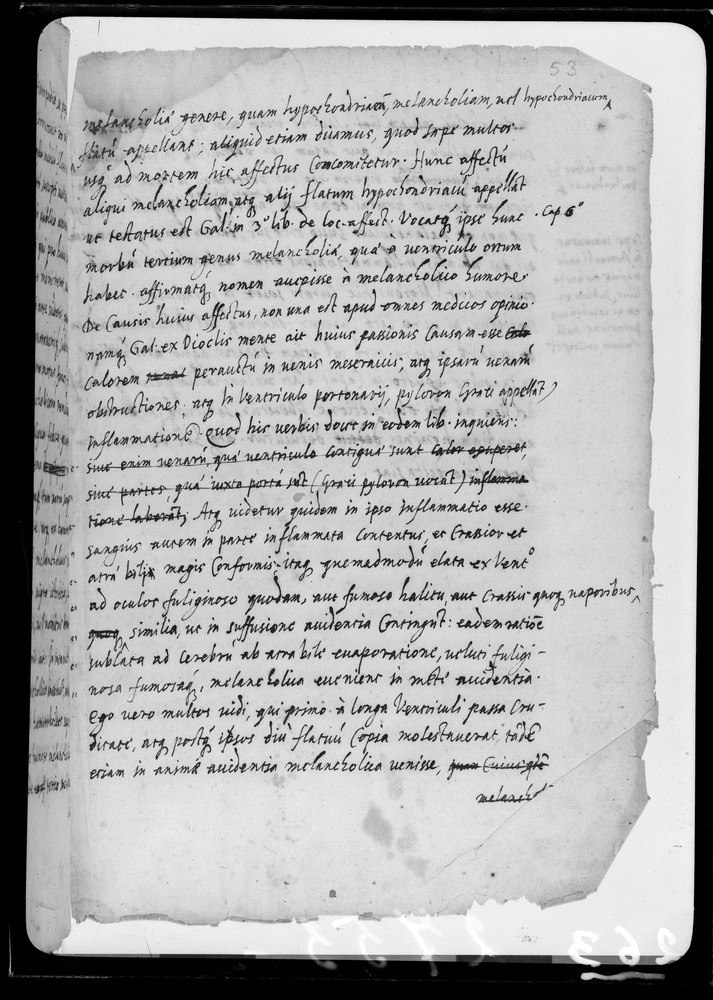 53
melancholiæ genere, quam hypochondriacā, melancholiam, uel hypochondriacum
flatū appellant; aliquid etiam diiamus, quod sæpe multos
usq; ad mortem hic affectus Concomitetur. Hunc affectū
aliqui melancholiam atq; alij flatum hypochondriacū appellāt
ut testatus est Gal: in 3º lib. de loc. affect. Vocatq; ipse hunc . Cap. 6º
morbū tertium genus melancholiæ, quæ à ventriculo ortum
habet. affirmatq; nomen accepisse à melancholico humore.
De Causis huius affectus, non una est apud omnes medicos opinio.
namq; Gal: ex Dioclis mente ait huius passionis Causam esse
Calorem perauctū in uenis meseraicis, atq; ipsarū uenarū
obstructiones. atq; in Ventriculo portonarij, pyloron Græci appellāt)
inflammationē. Quod his verbis docet in eodem lib. inquiens:
siue enim venarū, quæ ventriculo Contiguæ sunt Calor
siue partes, quæ iuxta portā sūt (Græci pyloron uocāt) inflamma
tione laborāt; Atq; uidetur quidem in ipso inflammatio esse.
Sanguis autem in parte inflammata Contentus, et Crassior et
atræ bili magis Conformis. itaq; quemadmodū elata ex Vent.º
ad oculos fuliginoso quodam, aut fumoso halitu, aut Crassis quoq; uaporibus
quoq; similia, ut in suffusione accidentia Contingūt: eadem ratiōe
sublâta ad Cerebrū ab atra bile euaporatione, ueluti fuligi-
nosa fumosaq;, melancholica eueniunt in mēte accidentia.
ego vero multos uidi, qui primo à longa Ventriculi passa Cru-
ditate, atq; postq; ipsos diù flatuū Copia molestauerat, tādē
etiam in animæ accidentia melancholica venisse, quam Cuius
melanch
263